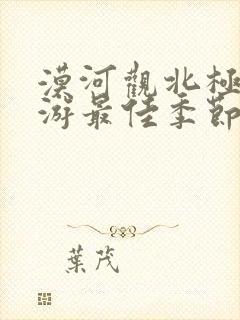 漠河觀北極
游最佳季節
葉茂